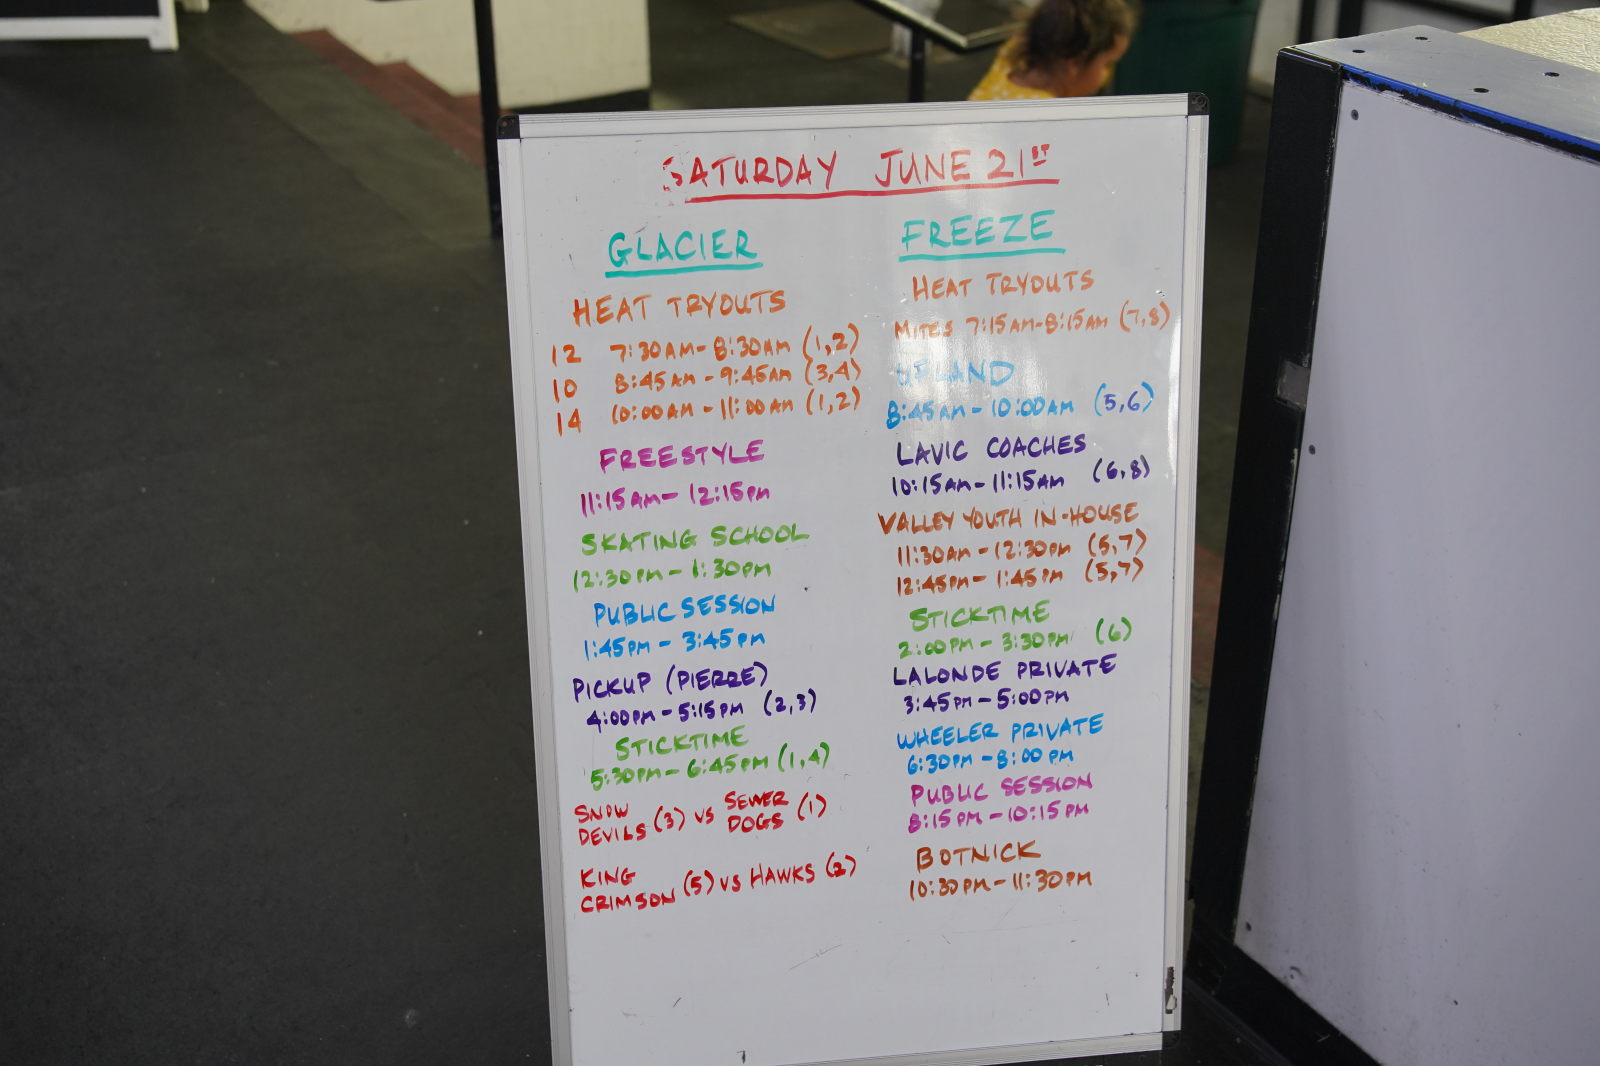 SATURDAY JUNE 21ST
GLACIER
HEAT TRYOUTS
12 7:30AM-8:30AM (1,2)
10 8:45AM-9:45AM (3,4)
14 10:00AM-11:00AM (1,2)
FREESTYLE
11:15AM-12:15PM
SKATING SCHOOL
12:30PM-1:30PM
PUBLIC SESSION
1:45PM-3:45PM
PICKUP (PIERRE)
4:00PM-5:15PM (2,3)
STICKTIME
5:30PM-6:45PM (1,4)
SNOW DEVILS (3) VS SEWER DOGS (1)
KING CRIMSON (5) VS HAWKS (2)
FREEZE
HEAT TRYOUTS
MITES 7:15AM-8:15AM (7,8)
UPLAND
8:45AM-10:00AM (5,6)
LAVIC COACHES
10:15AM-11:15AM (6,8)
VALLEY YOUTH IN-HOUSE
11:30AM-12:30PM (5,7)
12:45PM-1:45PM (5,7)
STICKTIME
2:00PM-3:30PM (6)
LALONDE PRIVATE
3:45PM-5:00PM
WHEELER PRIVATE
6:30PM-8:00PM
PUBLIC SESSION
8:15PM-10:15PM
BOTNICK
10:30PM-11:30PM